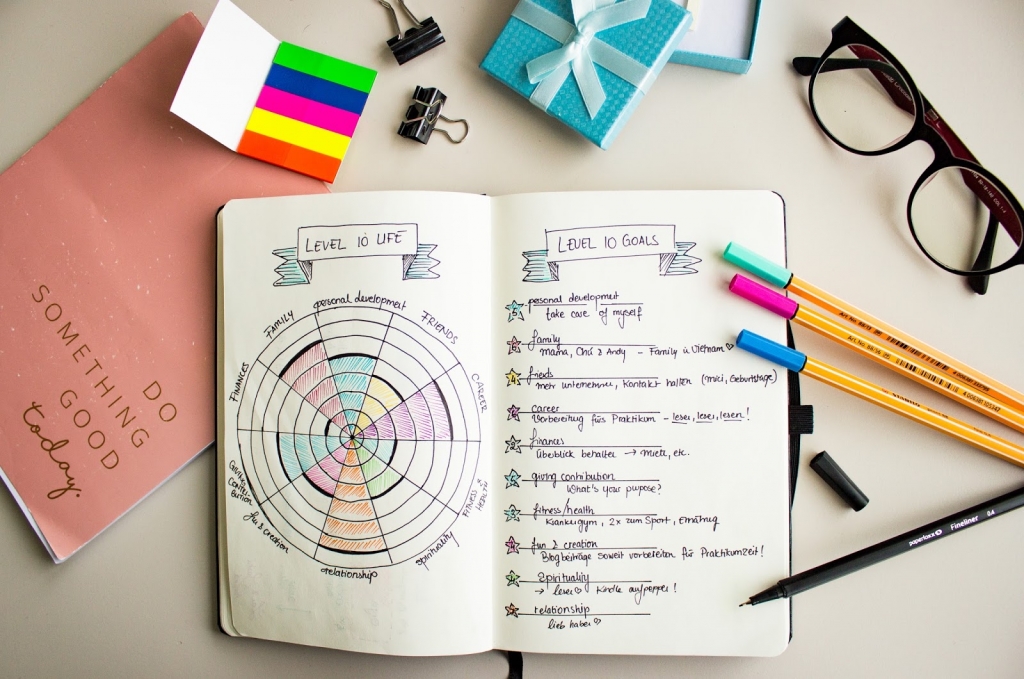 DO
SOMETHING
GOOD
today.
LEVEL 10 LIFE
personal development
FAMILY
FRIENDS
FINANCES
CAREER
GIVING CONTRI-
BUTION
FITNESS &
HEALTH
fun & creation
spirituality
relationship
LEVEL 10 GOALS
personal development
take care of myself
family
Mama, Chú & Andy - Family in Vietnam ♡
friends
mehr unternehmen, Kontakt halten (Mici, Geburtstage)
career
Vorbereitung fürs Praktikum - lesen, lesen, lesen!
finances
Überblick behalten → Miete, etc.
giving contribution
What's your purpose?
fitness/health
Krankengym, 2x zum Sport, Ernährung
fun & creation
Blogbeiträge soweit vorbereiten für Praktikumzeit!
Spirituality
→ lesen ♡ Kindle aufpeppen!
relationship
lieb haben ♡
paperoxx Fineliner 0.4